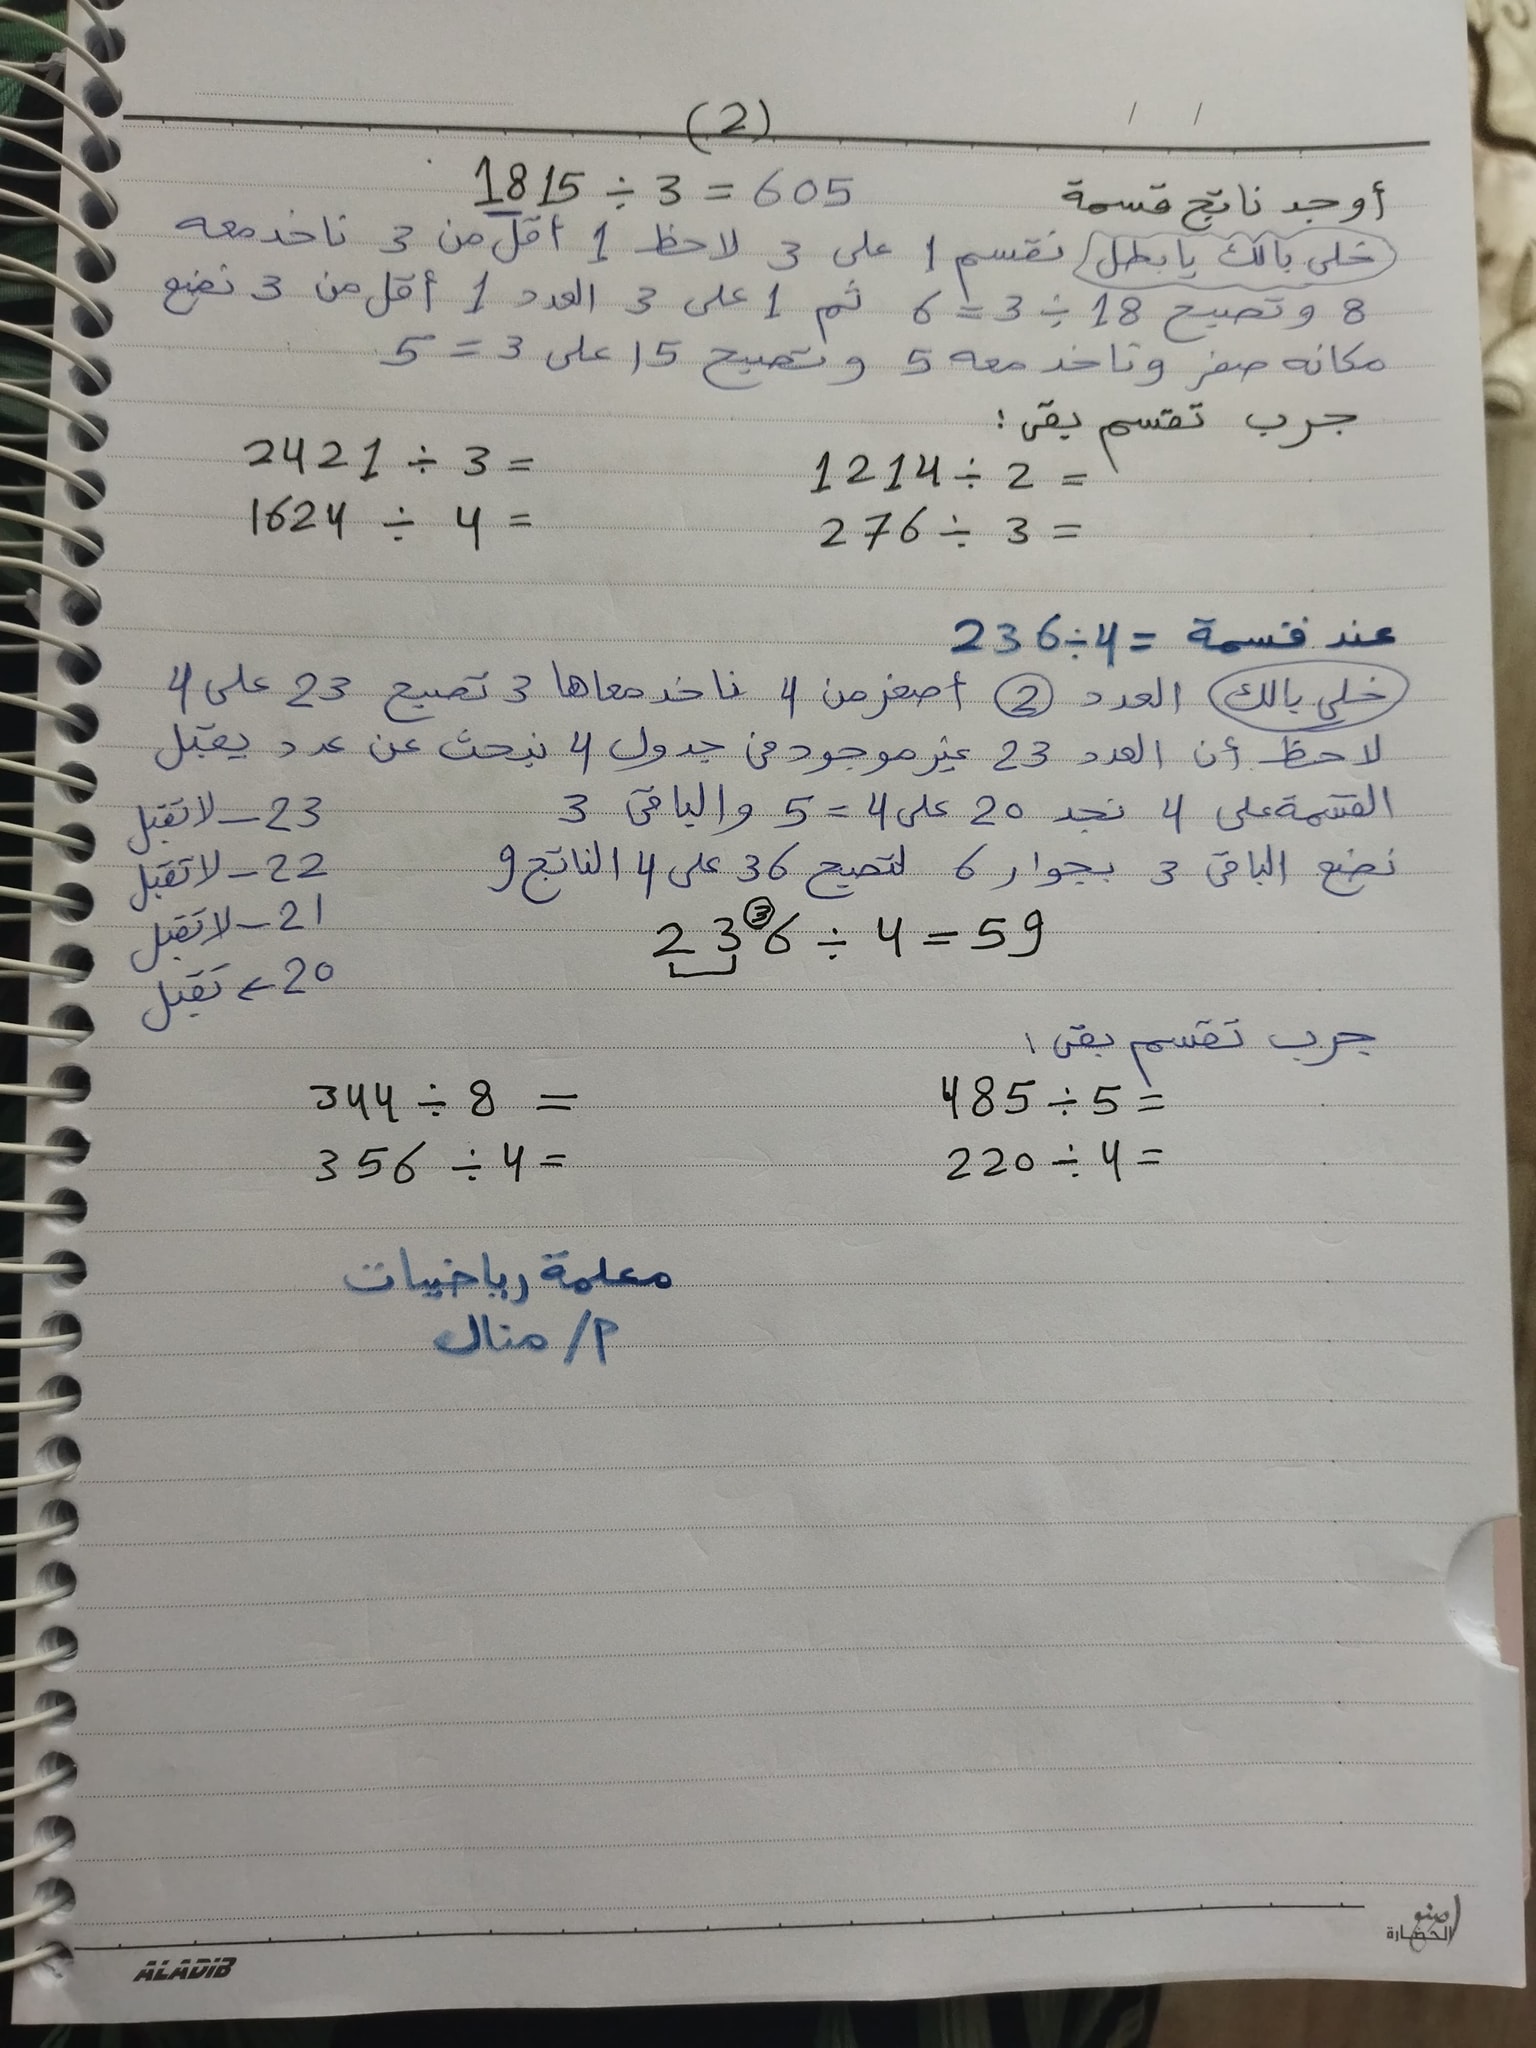 (2)
أوجد ناتج قسمة 1815 ÷ 3 = 605
خلي بالك يا بطل نقسم 1 على 3 لاحظ 1 أقل من 3 ناخد معه
8 وتصبح 18 ÷ 3 = 6 ثم 1 على 3 العدد 1 أقل من 3 نضع
مكانه صفر وناخد معه 5 وتصبح 15 على 3 = 5
جرب تقسم بقى :
1214 ÷ 2 = 2421 ÷ 3 =
276 ÷ 3 = 1624 ÷ 4 =
عند قسمة = 236÷4
خلي بالك العدد 2 أصغر من 4 ناخد معاها 3 تصبح 23 على 4
لاحظ أن العدد 23 غير موجود في جدول 4 نبحث عن عدد يقبل
القسمة على 4 نجد 20 على 4 = 5 والباقي 3
23 – لا تقبل
نضع الباقي 3 بجوار 6 لتصبح 36 على 4 الناتج 9
22 – لا تقبل
23³6 ÷ 4 = 59
21 – لا تقبل
20 ← تقبل
جرب تقسم بقى :
485 ÷ 5 = 344 ÷ 8 =
220 ÷ 4 = 356 ÷ 4 =
معلمة رياضيات
م/ منال
اصنع
الحضارة
ALADIB